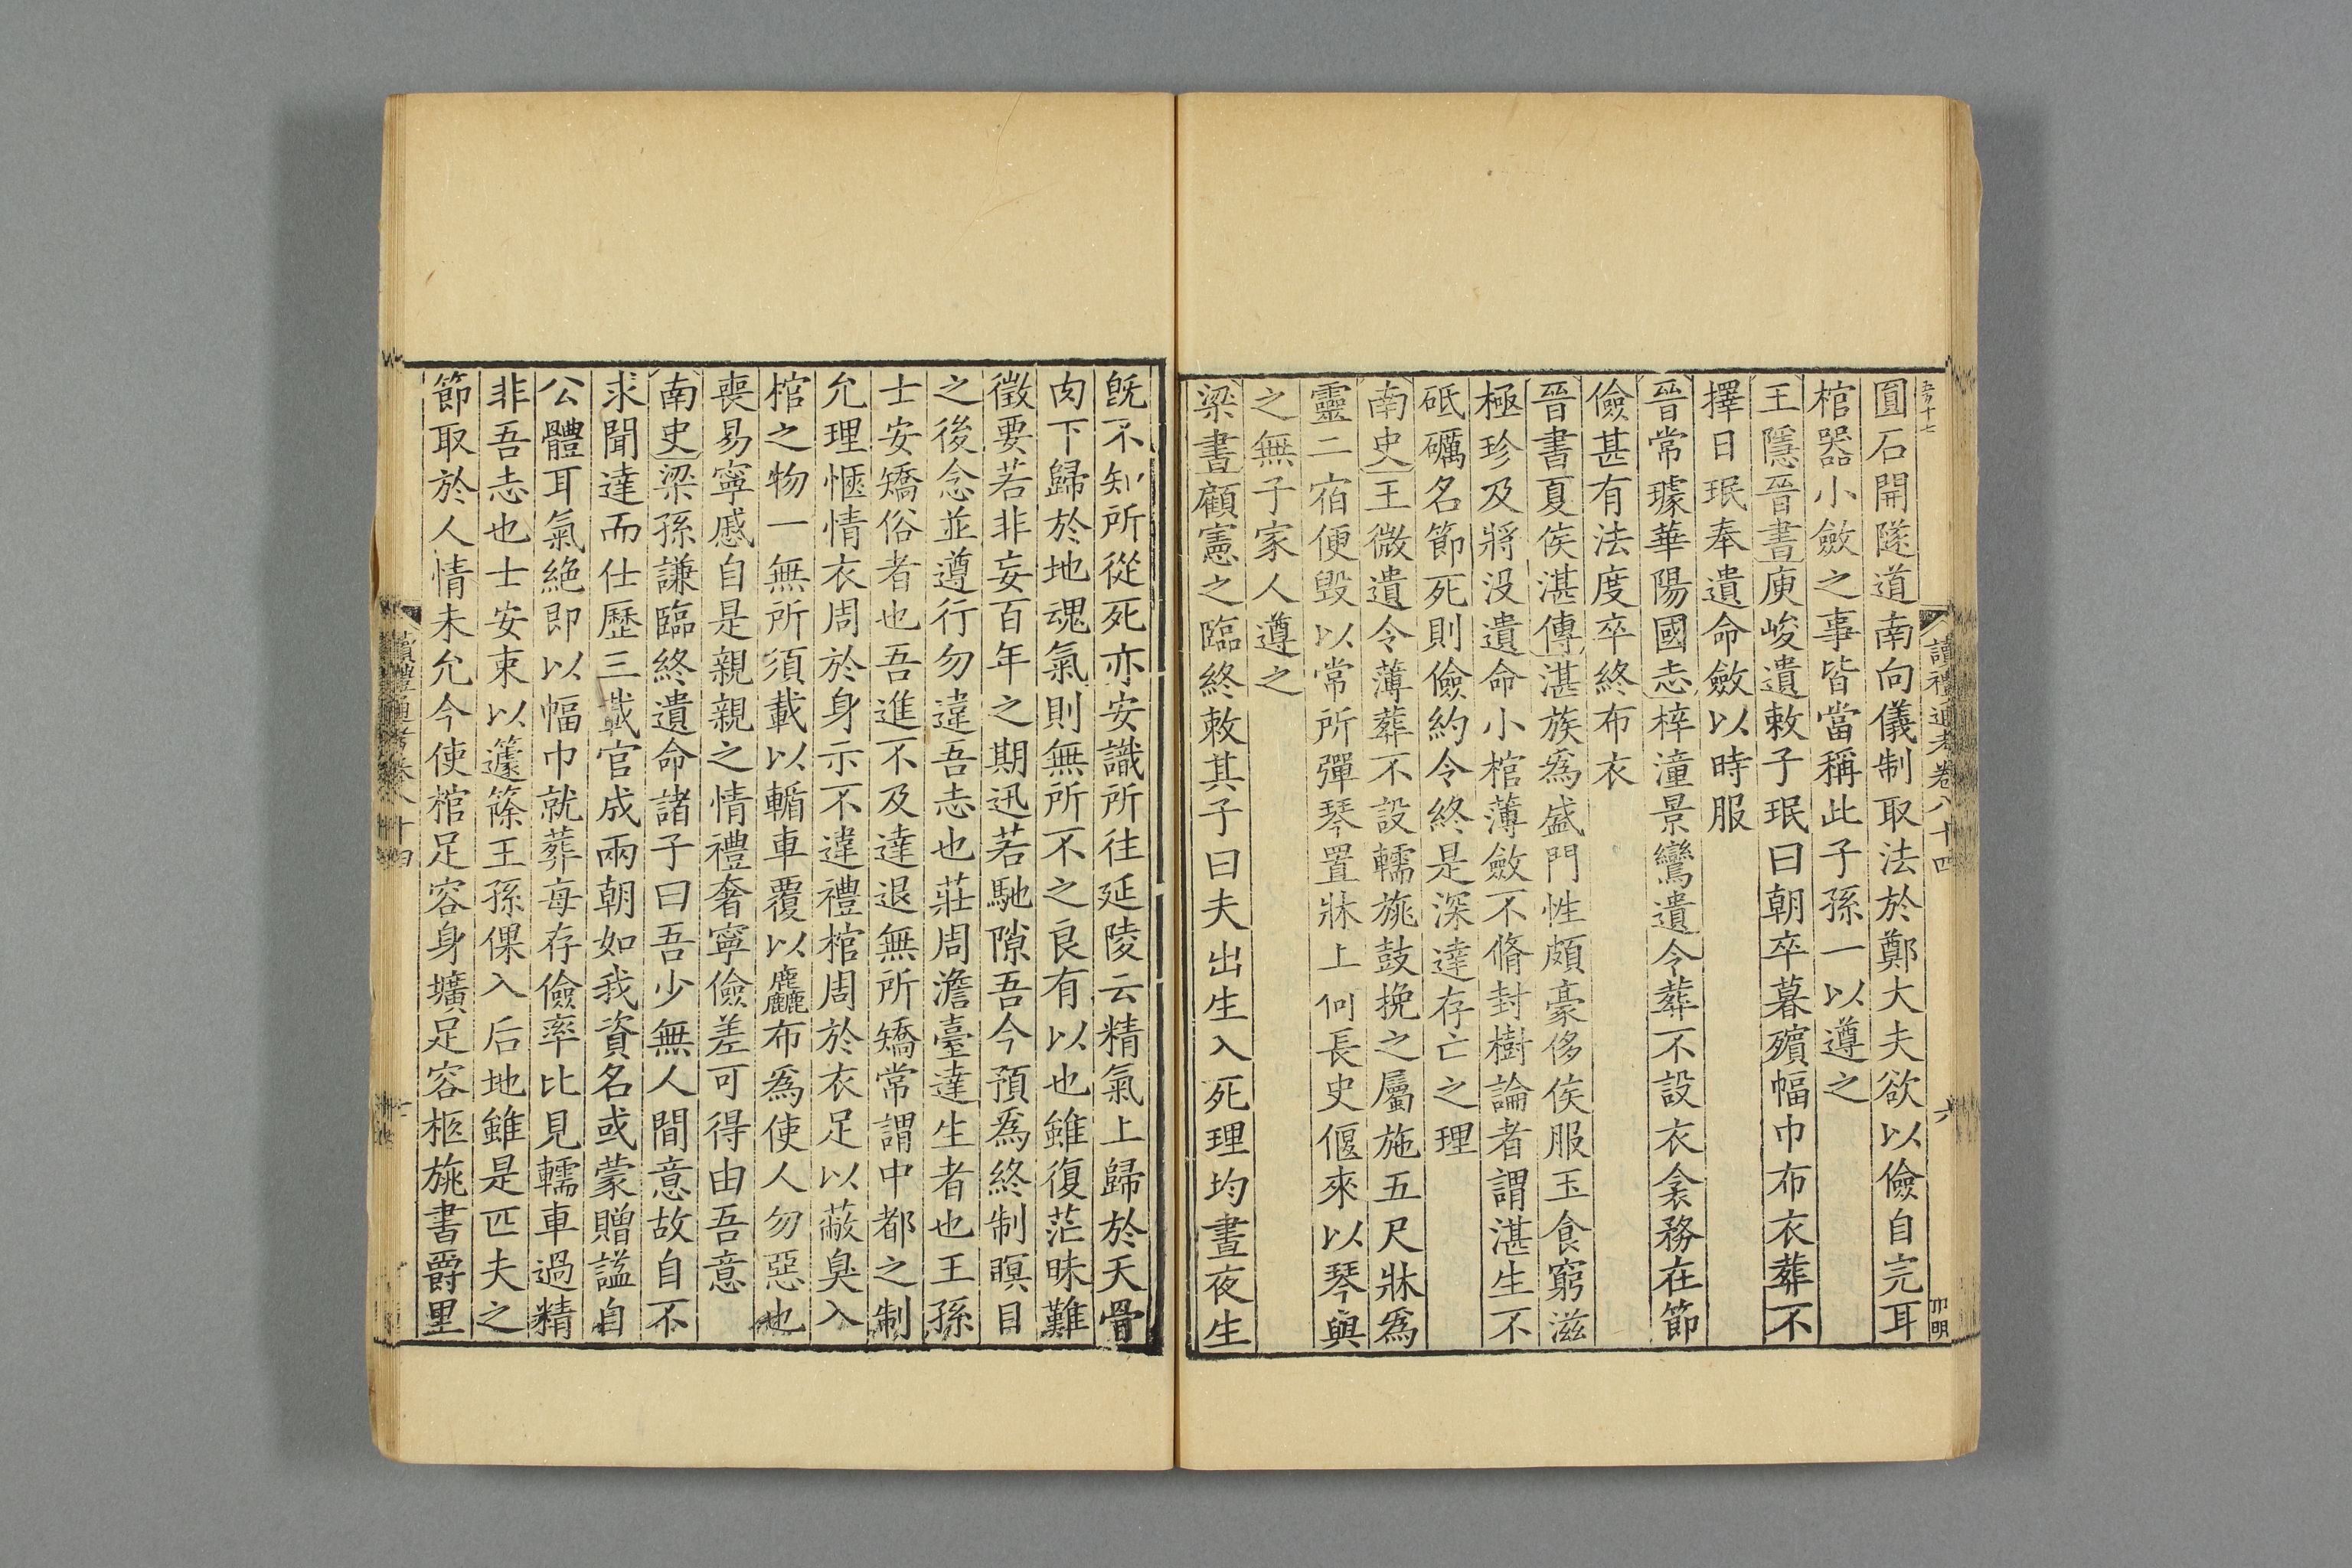 讀禮通考卷八十四
六
圓石開隧道南向儀制取法於鄭大夫欲以儉自完耳
棺器小斂之事皆當稱此子孫一以遵之
王隱晉書庾峻遺敕子珉曰朝卒暮殯幅巾布衣葬不
擇日珉奉遺命斂以時服
晉常璩華陽國志梓潼景鸞遺令葬不設衣衾務在節
儉甚有法度卒終布衣
晉書夏侯湛傳湛族爲盛門性頗豪侈侯服玉食窮滋
極珍及將没遺命小棺薄斂不脩封樹論者謂湛生不
砥礪名節死則儉約令終是深達存亡之理
南史王微遺令薄葬不設轜旐鼓挽之屬施五尺牀爲
靈二宿便毁以常所彈琴置牀上何長史偃來以琴與
之無子家人遵之
梁書顧憲之臨終敕其子曰夫出生入死理均晝夜生
旣不知所從死亦安識所往延陵云精氣上歸於天骨
肉下歸於地魂氣則無所不之良有以也雖復茫昧難
徵要若非妄百年之期迅若馳隙吾今預爲終制瞑目
之後念並遵行勿違吾志也莊周澹臺達生者也王孫
士安矯俗者也吾進不及達退無所矯常謂中都之制
允理愜情衣周於身示不違禮棺周於衣足以蔽臭入
棺之物一無所須載以輴車覆以麤布爲使人勿惡也
喪易寧慼自是親親之情禮奢寧儉差可得由吾意
南史梁孫謙臨終遺命諸子曰吾少無人間意故自不
求聞達而仕歷三代官成兩朝如我資名或蒙贈謚自
公體耳氣絶即以幅巾就葬每存儉率比見轜車過精
非吾志也士安束以籧篨王孫倮入后地雖是匹夫之
節取於人情未允今使棺足容身壙足容柩旐書爵里
讀禮通考卷八十四